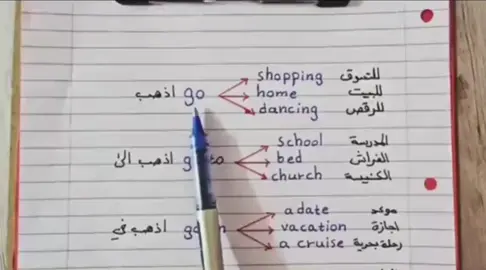 shopping للتسوق
go اذهب home للبيت
dancing للرقص
school المدرسة
اذهب الى bed الفراش
church الكنيسة
a date موعد
اذهب في vacation اجازة
a cruise رحلة بحرية